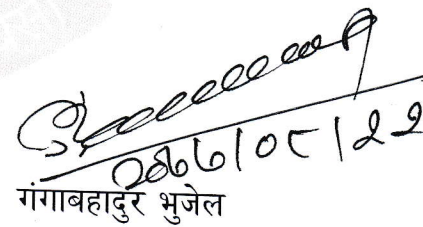 २०७७/०८/२२
गंगाबहादुर भुजेल